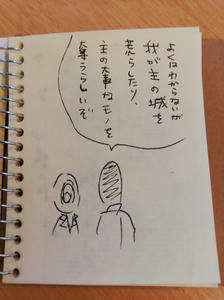 よくはわからないが
我が主の城を
荒らしたり、
主の大事なモノを
奪うらしいぞ